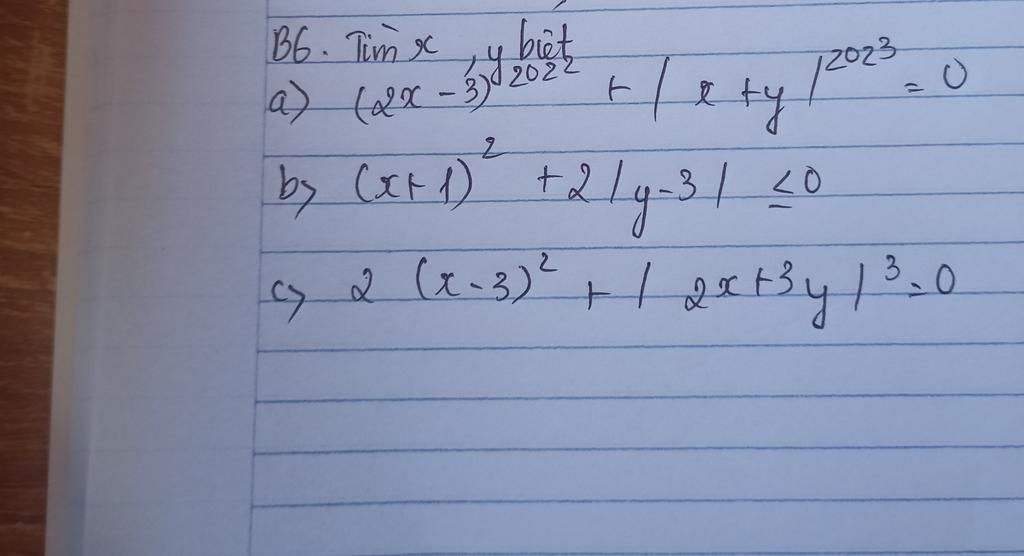 B6. Tìm x, y biết
a) (2x - 3)^2022 + |x + y|^2023 = 0
b) (x + 1)^2 + 2|y - 3| ≤ 0
c) 2 (x - 3)^2 + |2x + 3y|^3 = 0